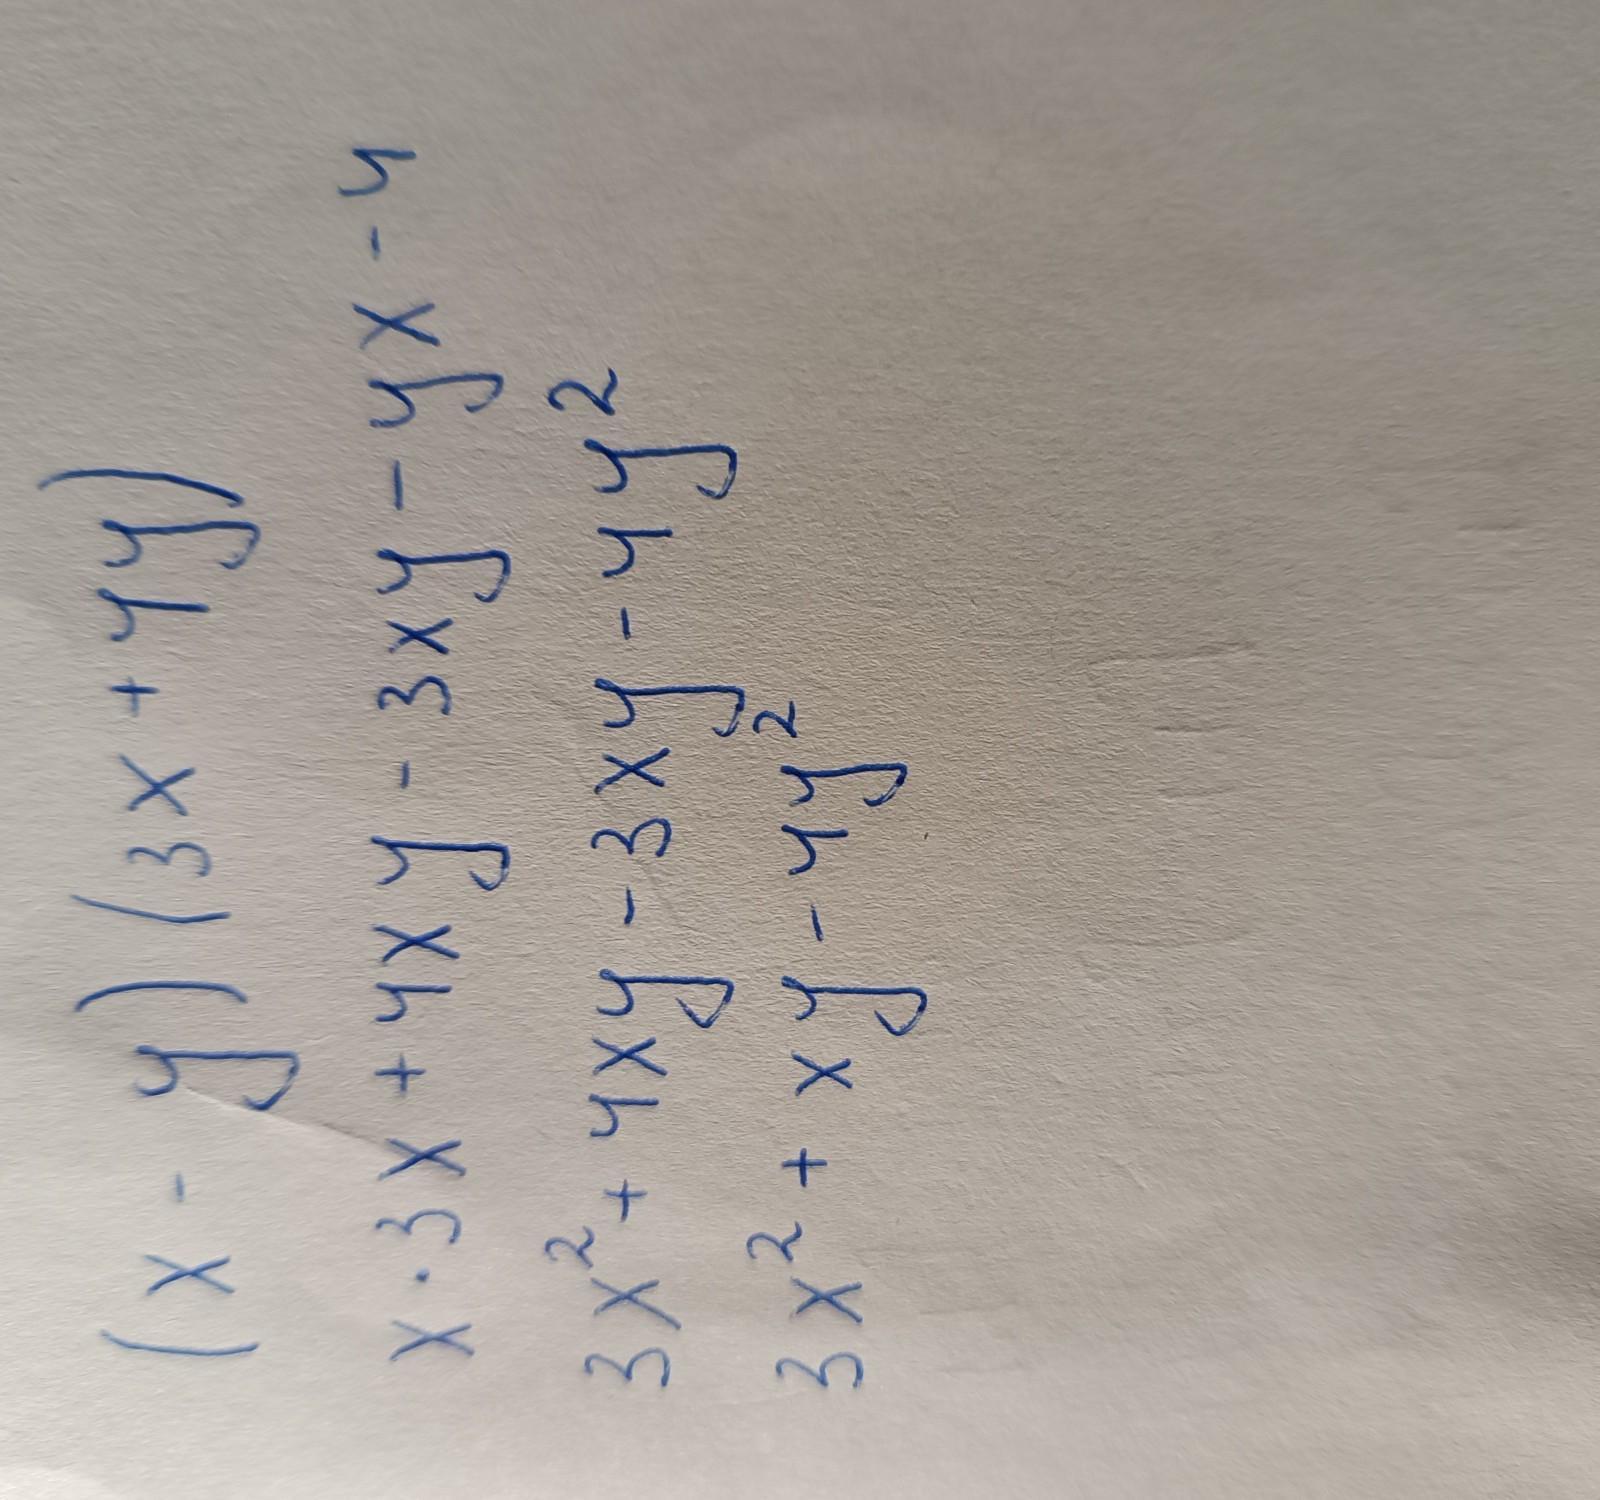 (x - y)(3x + 4y)
x · 3x + 4xy - 3xy - yx - 4
3x² + 4xy - 3xy - 4y²
3x² + xy - 4y²